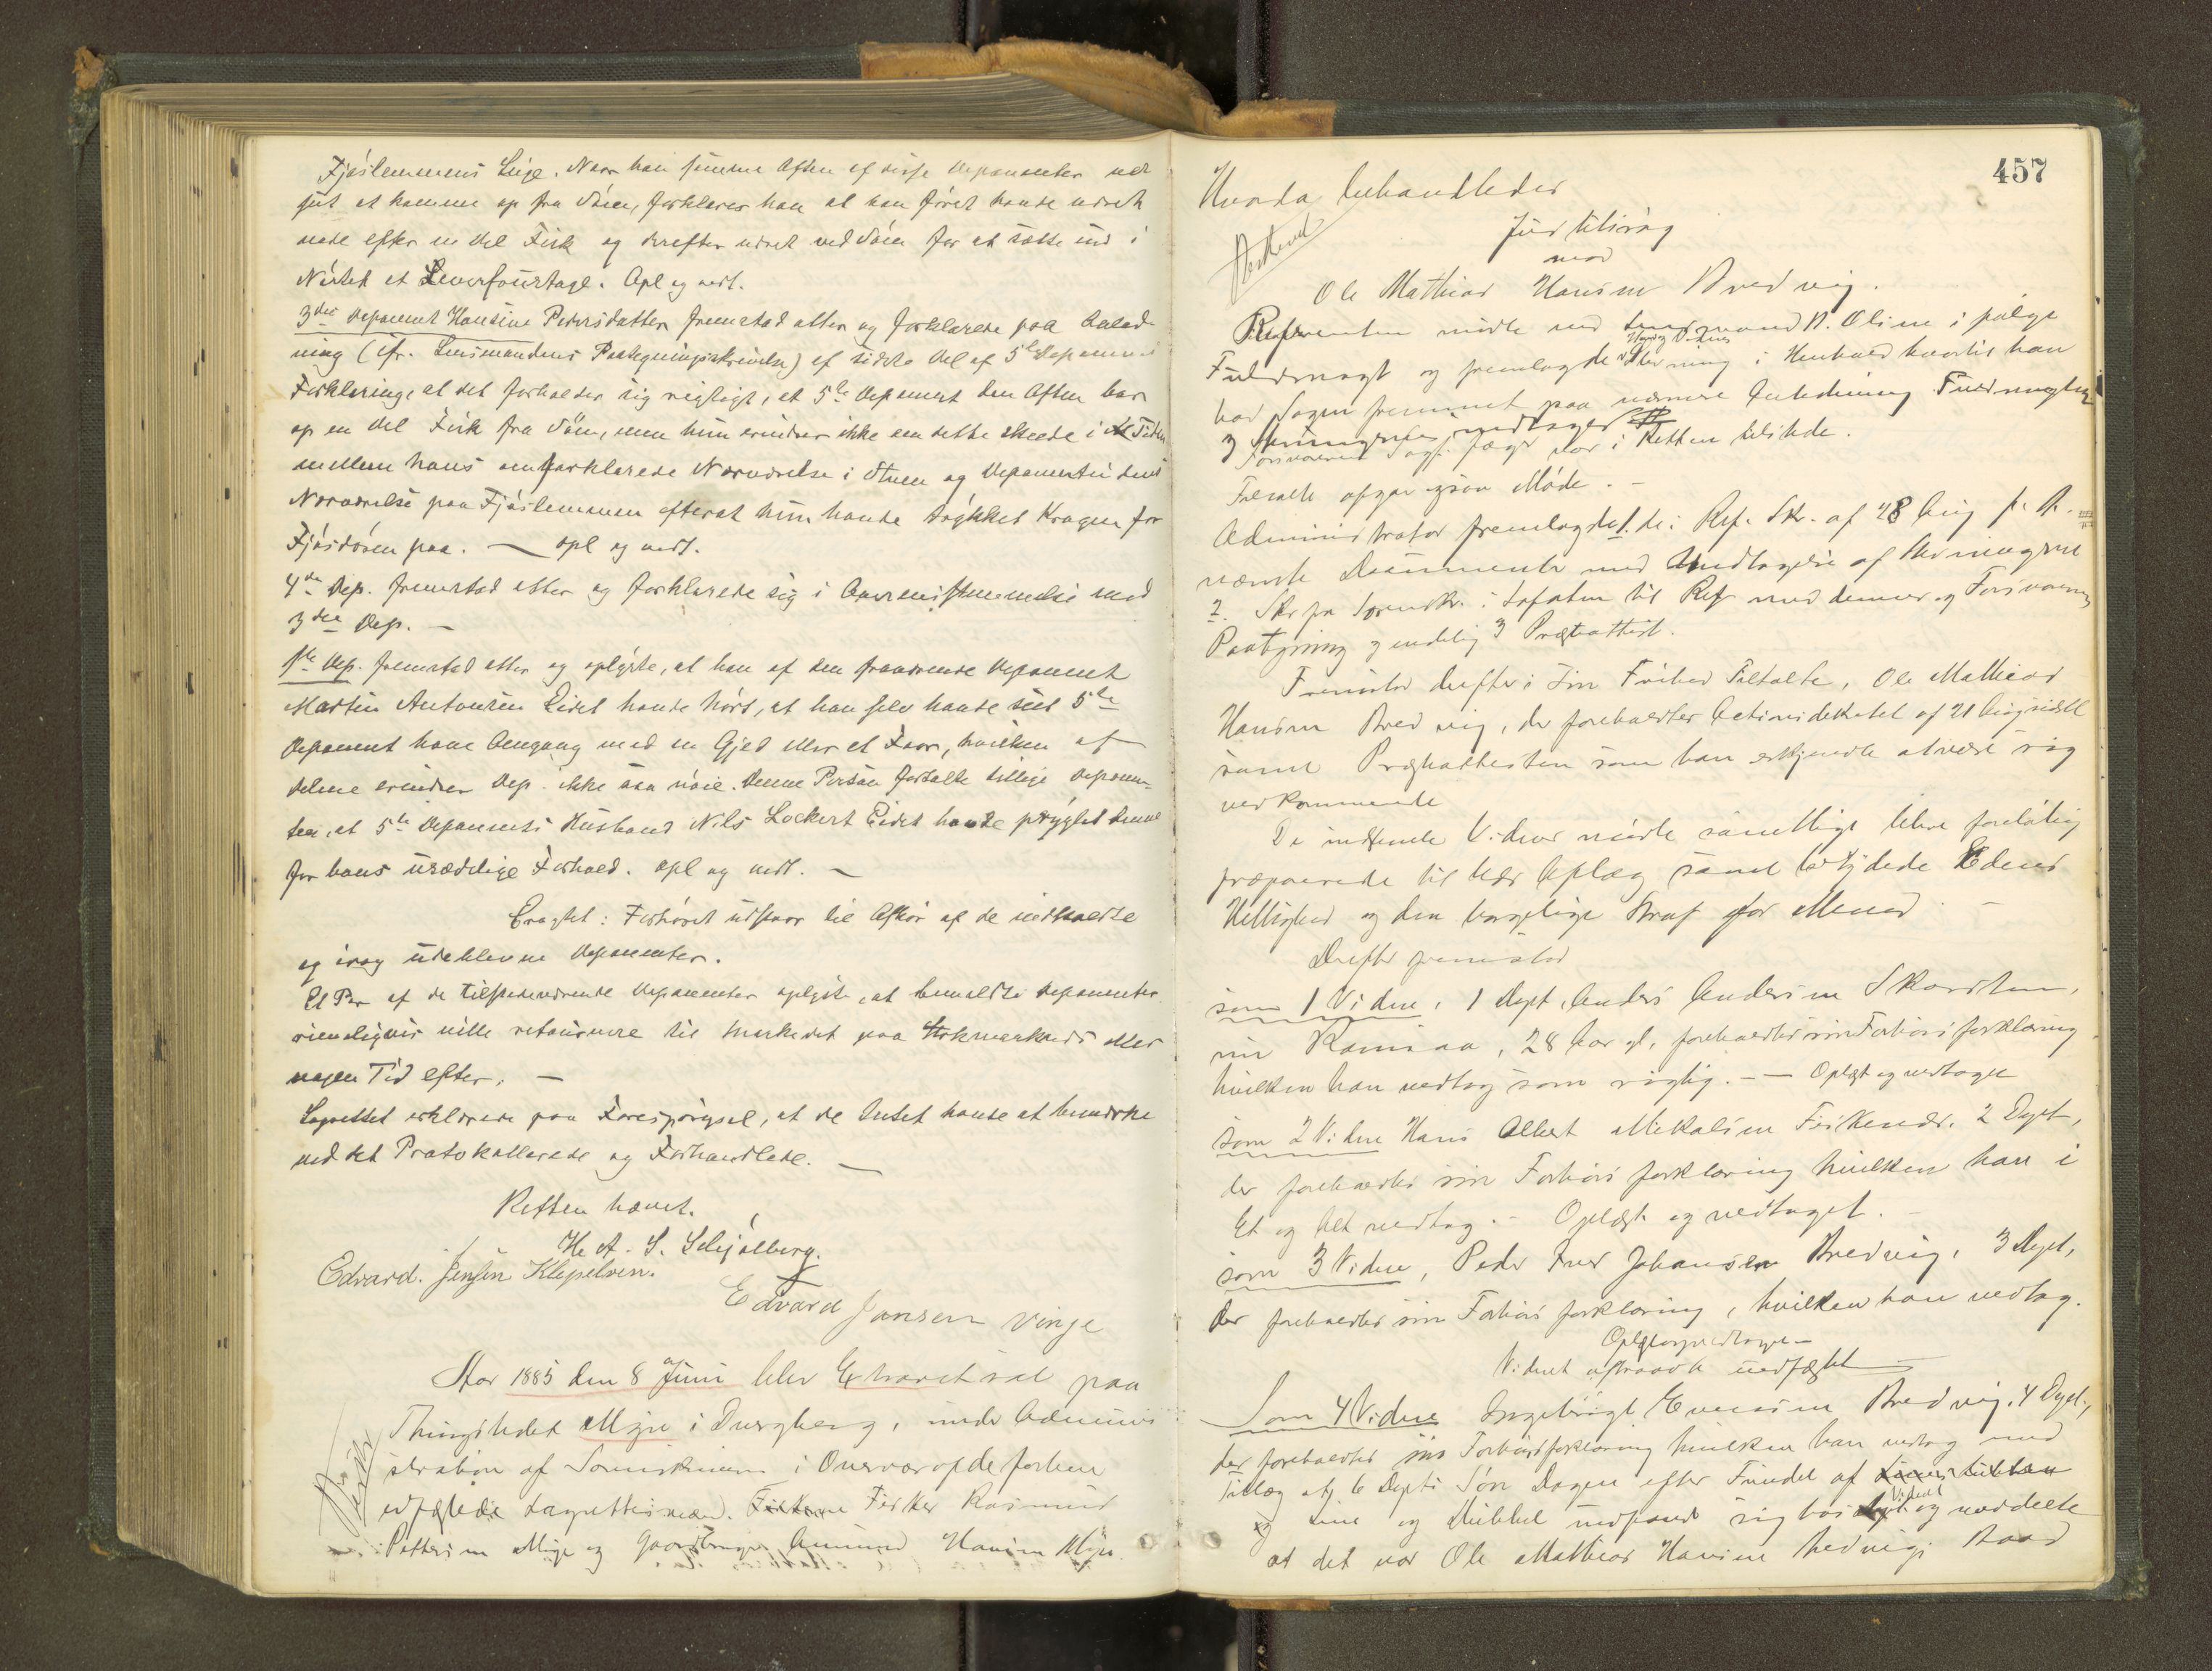 Fjøslemmens Luge. Naar han samme Aften af disse Deponenter var
set at komme op fra Søen, forklarer han at han først havde været
nede efter en Del Fisk og derefter været ved Søen for at sætte ind i
Nøstet et Leverfoustage. Opl og vedt.
3die Deponent Hansine Pedersdatter fremstod atter og forklarede paa Anled-
ning (cfr. Lensmandens Paategningsskrivelse) af sidste Del af 5te Deponents
Forklaring, at det forholder sig rigtigt, at 5te Deponent den Aften bar
op en Del Fisk fra Søen, men hun erindrer ikke om dette skeede i Tiden
mellem hans omforklarede Nærværelse i Stuen og Deponentindens
Nærværelse paa Fjøslemmen efterat hun havde trykket Kragen for
Fjøsdøren paa. — opl og vedt.
4de Dep. fremstod atter og forklarede sig i Overensstemmelse med
3die Dep. —
1ste Dep. fremstod atter og oplyste, at han af den fraværende Deponent
Martin Antonsen Eidet havde hørt, at han selv havde seet 5te
Deponent have Omgang med en Gjed eller et Faar, hvilken af
Delene erindrer Dep. ikke saa nøie. Denne Person fortalte tillige Deponen-
ten, at 5te Deponents Husbond Nils Lockert Eidet havde pryglet denne
for hans usædelige Forhold. opl og vedt. —
Eragtet: Forhøret udstaar til Afhør af de indkaldte
og idag udeblevne Deponenter.
Et Par af de tilstedeværende Deponenter oplyste, at bemeldte Deponenter
rimeligvis ville retournere til Markedet paa Stokmarknes eller
nogen Tid efter. —
Lagrettet erklærede paa Forespørgsel, at de Intet havde at bemærke
ved det Protokollerede og Forhandlede. —
Retten hævet.
H. A. S. Schjølberg.
Edvard. Jensen Klepelven.
Edvard Jansen Vinje
Aar 1885 den 8 Juni blev Extraret sat paa
Thingstedet Myre i Dverberg, under Adminis
stration af Sorenskriveren i Overvær af de forhen
edfæstede Lagrettesmænd. Fisker Rasmus
Pettersen Myre og Gaardbruger Amund Hansen Myre.
457
Hvorda behandledes
Justitssag
mod
Ole Mathias Hansen Bredvig.
Referenten mødte ved Lensmand A. Olsen i følge
Fuldmagt og fremlagde Stevning i Henhold hvortil han
bad Sagen fremmet paa nærmere Anledning Fuldmagten
Forsvareren Sagf. Jæger var i Retten tilstede.
Tiltalte afgav ogsaa Møde. —
Administrator fremlagde 1. de i Ref. Skr. af 28 Aug f. A.
nævnte Documenter med Undtagelse af Stevningerne
2. Skr fra Sorenskr. i Lofoten til Ref med dennes og Forsvarerens
Paategning og endelig 3 Præsteattest.
Fremstod derefter i sin Frihed Tiltalte, Ole Mathias
Hansen Bredvig, der foreholdtes Actionsdekretet af 21 Aug sidstl
samt Præsteattesten som han erkjendte at være sig
vedkommende
De indstevnte Vidner mødte samtlige bleve foreløbig
præparerede til Eds Aflæg samt betydede Edens
Hellighed og den borgelige Straf for Mened. —
Derefter fremstod
som 1 Vidne, 1 Dept. Anders Andersen Skarstein,
nu Ramsaa, 28 Aar gl. foreholdtes sin Forhørsforklaring
hvilken han vedtog som rigtig. — Oplæst og vedtaget
Som 2 Vidne Hans Albert Mikalsen Fiskenæs. 2 Dept,
der foreholdtes sin Forhørsforklaring hvilken han i
Et og Alt vedtog. — Oplæst og vedtaget. —
som 3 Vidne, Peder Iver Johansen Bredvig, 3 Dept,
der foreholdtes sin Forhørsforklaring, hvilken han vedtog.
Oplæst og vedtaget —
Vidnet aftraadte uedfæstet —
Som 4 Vidne Ingebrigt Evensen Bredvig. 4 Dept.,
der foreholdtes sin Forhørsforklaring hvilken han vedtog med
Tillæg at 6 Depts Søn Dagen efter Fundet af
Line og Dubbel indfandt sig hos Vidnet og meddelte
at det var Ole Mathias Hansen Bredvigs Baad